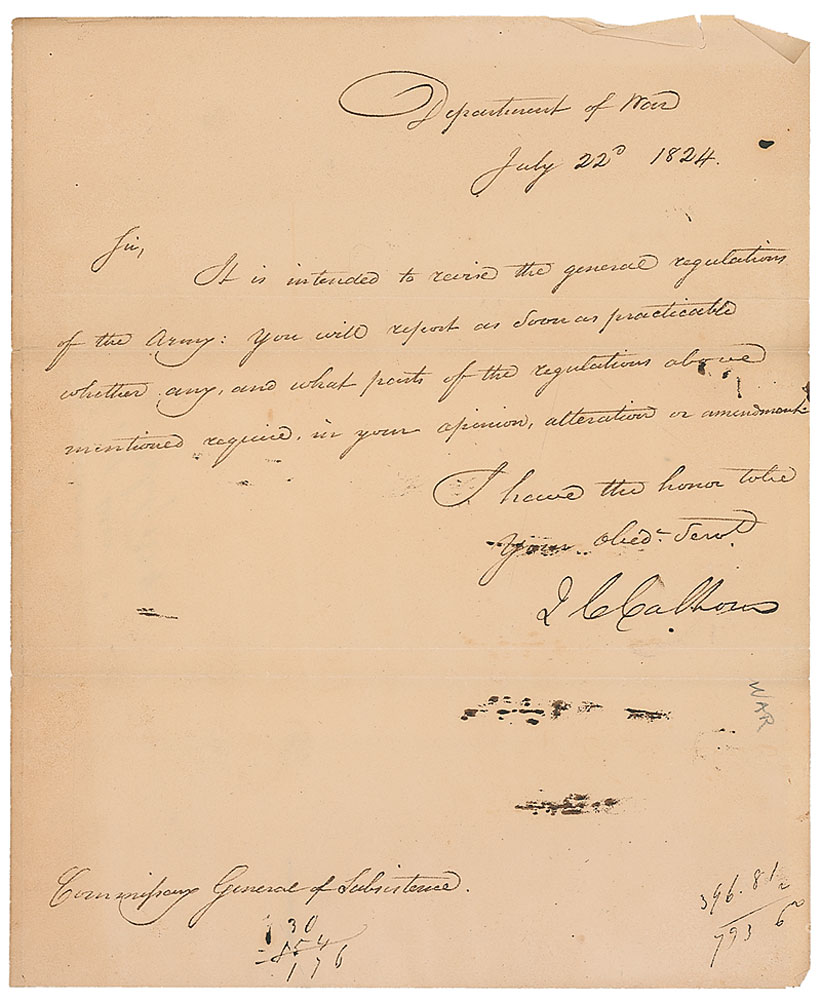 Department of War
July 22d 1824.
Sir,
It is intended to revise the general regulations
of the Army: You will report as soon as practicable
whether any, and what parts of the regulations above
mentioned require, in your opinion, alteration or amendment.
I have the honor to be
Your Obedt. Servt.
J C Calhoun
WAR
Commissary General of Subsistence.
30
176
396.81
793